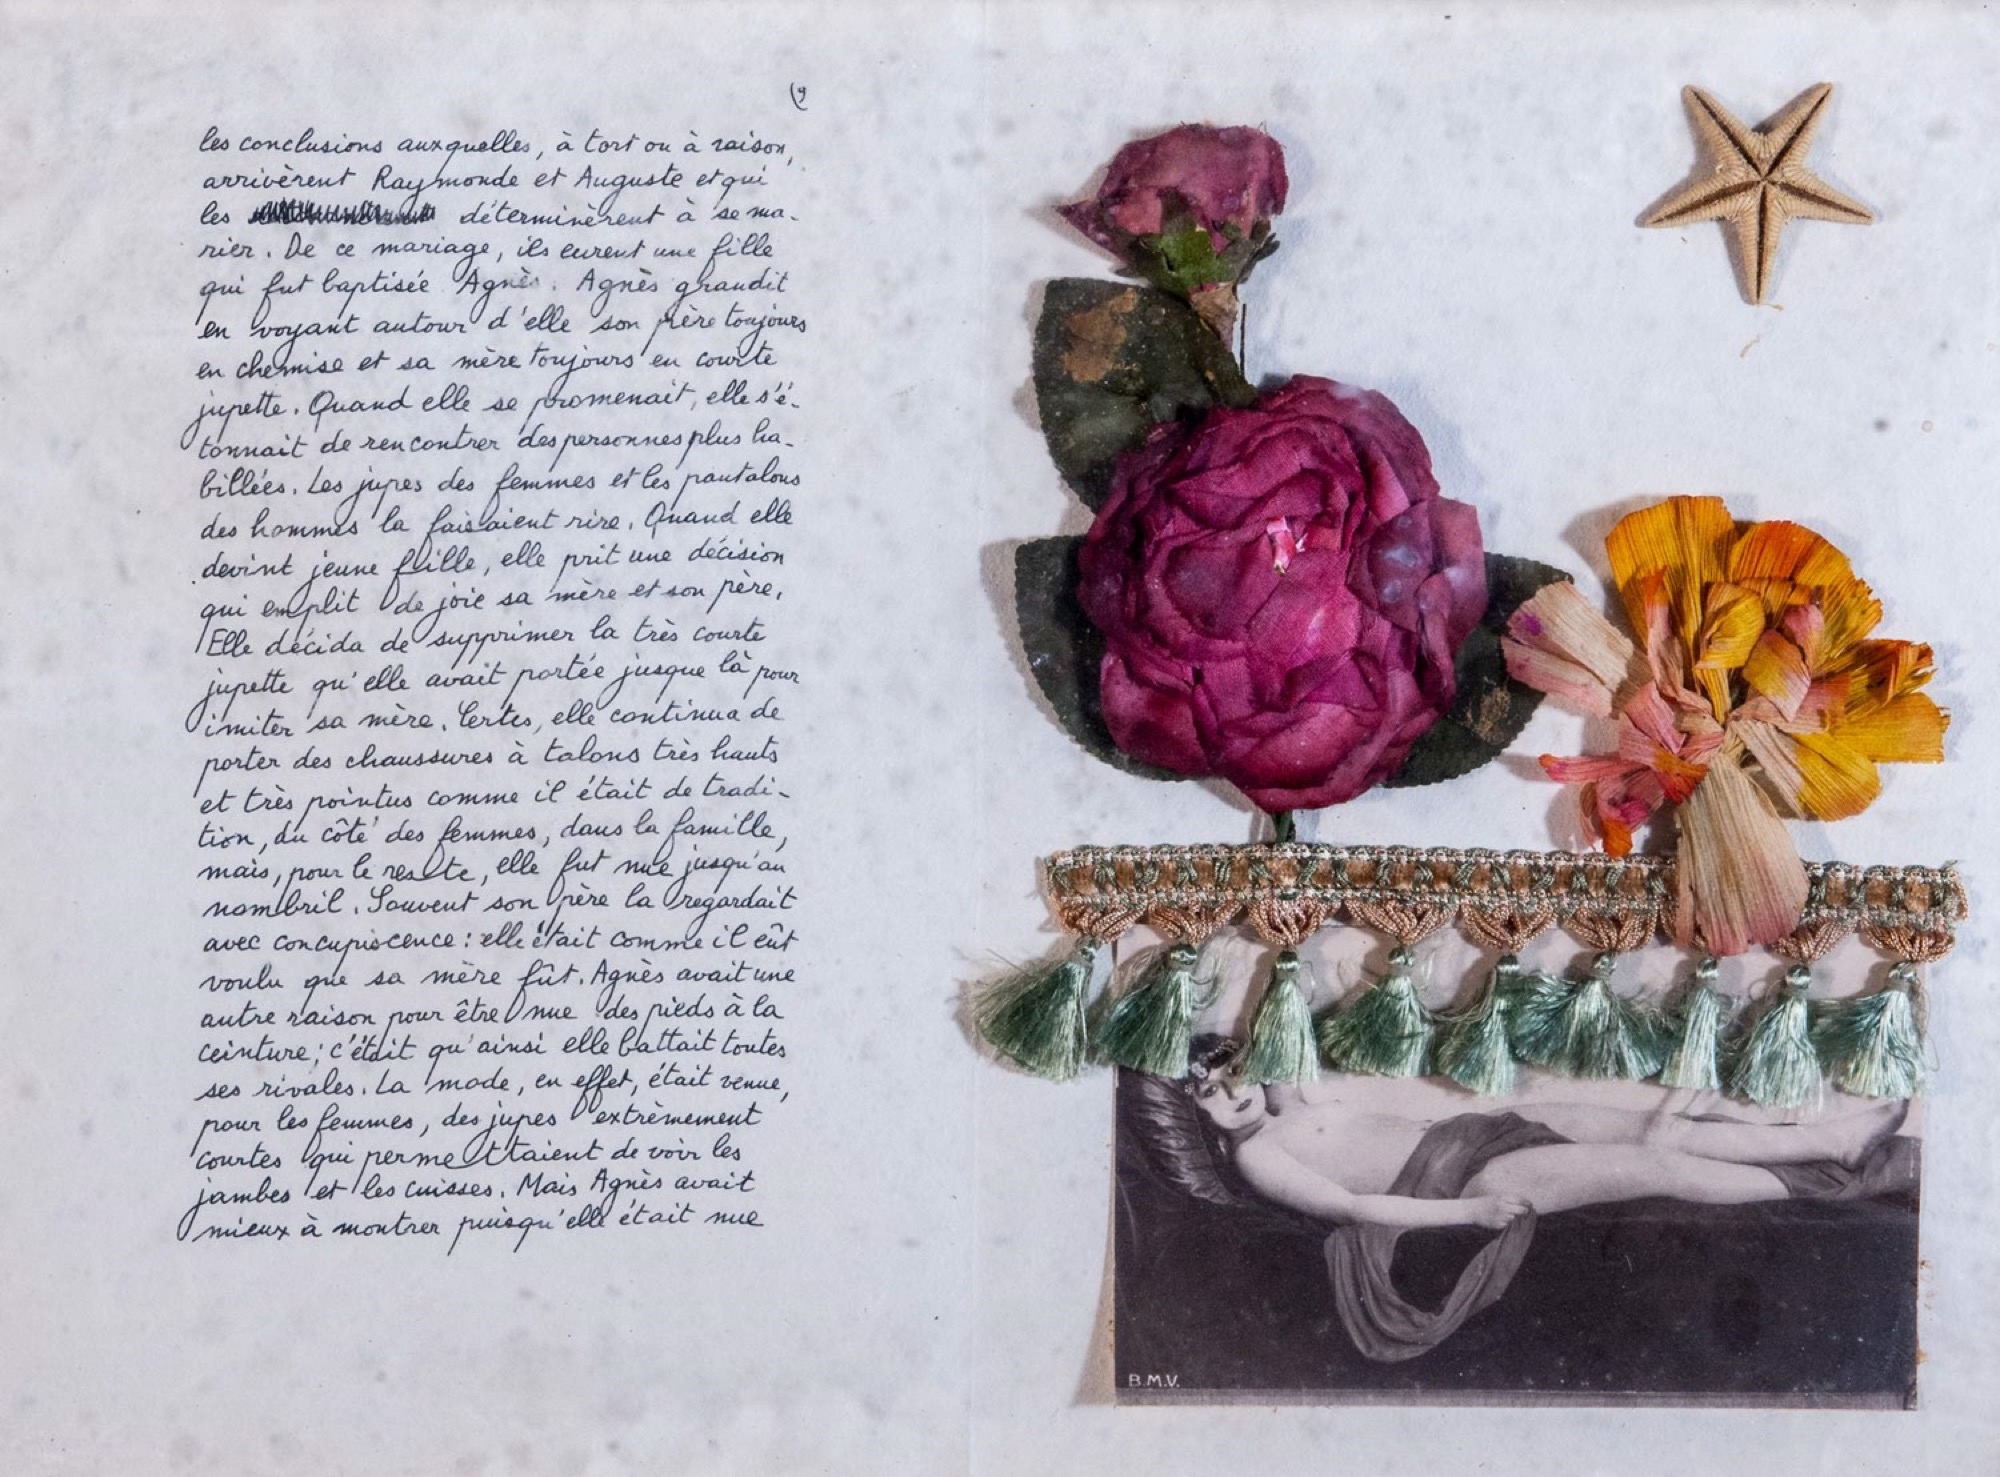 (9
les conclusions auxquelles, à tort ou à raison,
arrivèrent Raymonde et Auguste et qui
les déterminèrent à se ma-
rier. De ce mariage, ils eurent une fille
qui fut baptisée Agnès. Agnès grandit
en voyant autour d'elle son père toujours
en chemise et sa mère toujours en courte
jupette. Quand elle se promenait, elle s'é-
tonnait de rencontrer des personnes plus ha-
billées. Les jupes des femmes et les pantalons
des hommes la faisaient rire. Quand elle
devint jeune fille, elle prit une décision
qui emplit de joie sa mère et son père.
Elle décida de supprimer la très courte
jupette qu'elle avait portée jusque là pour
imiter sa mère. Certes, elle continua de
porter des chaussures à talons très hauts
et très pointus comme il était de tradi-
tion, du côté des femmes, dans la famille,
mais, pour le reste, elle fut nue jusqu'au
nombril. Souvent son père la regardait
avec concupiscence : elle était comme il eût
voulu que sa mère fût. Agnès avait une
autre raison pour être nue des pieds à la
ceinture ; c'était qu'ainsi elle battait toutes
ses rivales. La mode, en effet, était venue,
pour les femmes, des jupes extrèmement
courtes qui permettaient de voir les
jambes et les cuisses. Mais Agnès avait
mieux à montrer puisqu'elle était nue
B.M.V.